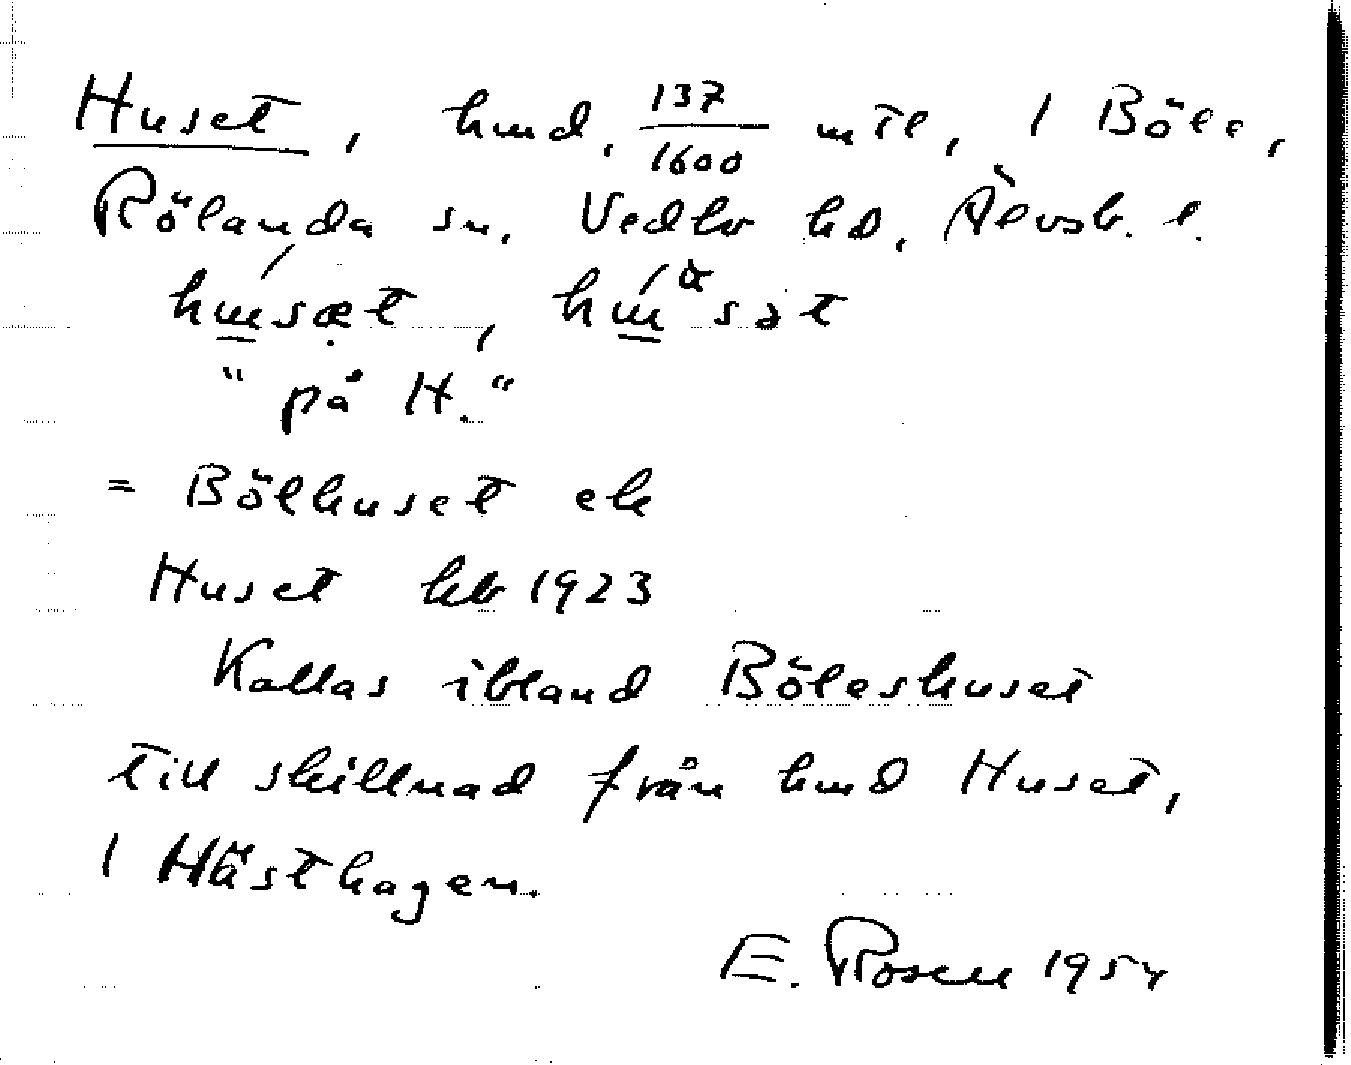 Huset, hmd, 137/1600 mtl, 1 Böle,
Rölanda sn. Vedbo hd, Älvsb. l.
"på H."
= Bölhuset ek
Huset kb 1923
Kallas ibland Böleshuset
till skillnad från hmd Huset,
1 Hästhagen.
E. Rosell 1954